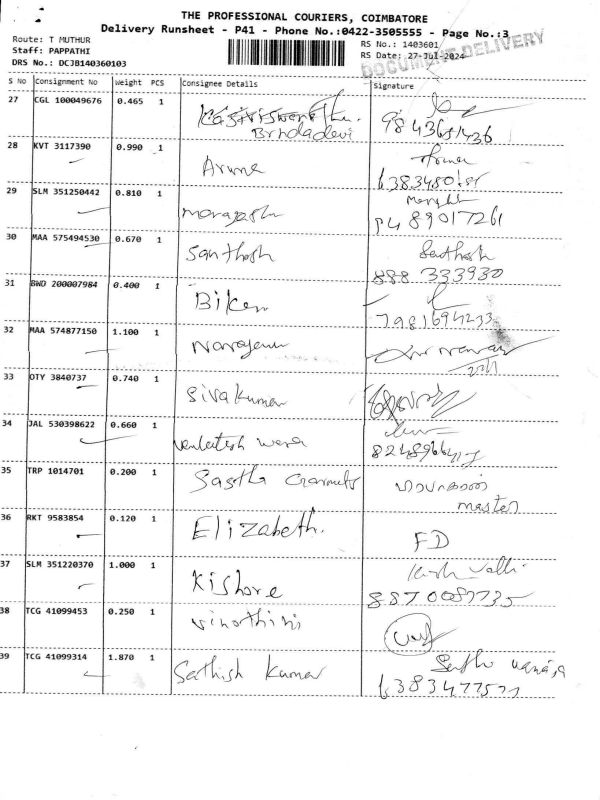 THE PROFESSIONAL COURIERS, COIMBATORE
Delivery Runsheet - P41 - Phone No.:0422-3505555 - Page No.:3
Route: T MUTHUR
Staff: PAPPATHI
DRS No.: DCJB140360103
RS No.: 1403601
RS Date: 27-Jul-2024
DOCUMENT DELIVERY
S No Consignment No Weight PCS Consignee Details Signature
27 CGL 100049676 0.465 1
Brndadevi
28 KVT 3117390 0.990 1 Aruna
29 SLM 351250442 0.810 1
8489017261
30 MAA 575494530 0.670 1 Santhosh Santhosh
888 333930
31 BWD 200007984 0.400 1 Biken
7981694233
32 MAA 574877150 1.100 1
33 OTY 3840737 0.740 1 Sivakumar
34 JAL 530398622 0.660 1
35 TRP 1014701 0.200 1 Sastha
master
36 RKT 9583854 0.120 1 Elizabeth. FD
37 SLM 351220370 1.000 1 Kishore
8870087735
38 TCG 41099453 0.250 1 Vinothini
39 TCG 41099314 1.870 1 Sathish Kumar